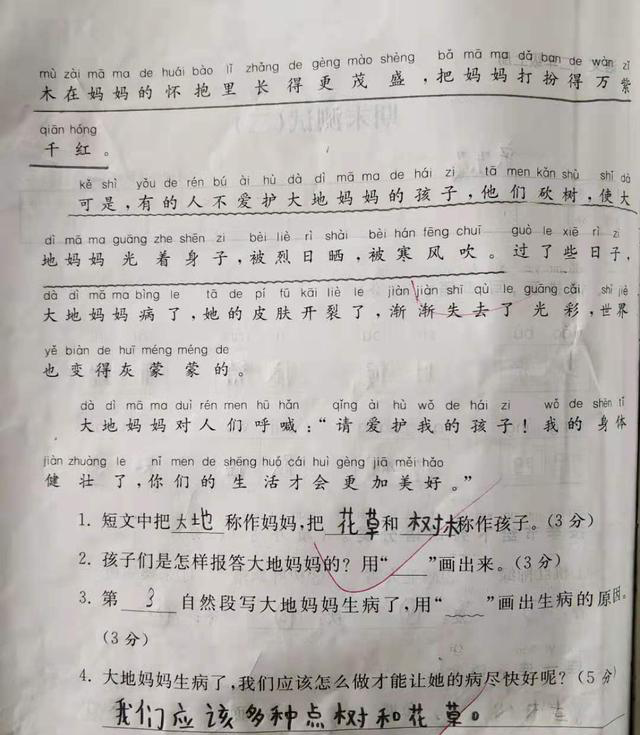 mù zài mā ma de huái bào lǐ zhǎng de gèng mào shèng bǎ mā ma dǎ ban de wàn zǐ
木在妈妈的怀抱里长得更茂盛,把妈妈打扮得万紫
qiān hóng
千红。
kě shì yǒu de rén bú ài hù dà dì mā ma de hái zi tā men kǎn shù shǐ dà
可是,有的人不爱护大地妈妈的孩子,他们砍树,使大
dì mā ma guāng zhe shēn zi bèi liè rì shài bèi hán fēng chuī guò le xiē rì zi
地妈妈光着身子,被烈日晒,被寒风吹。过了些日子,
dà dì mā ma bìng le tā de pí fū kāi liè le jiàn jiàn shī qù le guāng cǎi shì jiè
大地妈妈病了,她的皮肤开裂了,渐渐失去了光彩,世界
yě biàn de huī méng méng de
也变得灰蒙蒙的。
dà dì mā ma duì rén men hū hǎn qǐng ài hù wǒ de hái zi wǒ de shēn tǐ
大地妈妈对人们呼喊:“请爱护我的孩子!我的身体
jiàn zhuàng le nǐ men de shēng huó cái huì gèng jiā měi hǎo
健壮了,你们的生活才会更加美好。”
1. 短文中把大地称作妈妈,把花草和树林称作孩子。(3分)
2. 孩子们是怎样报答大地妈妈的?用“——”画出来。(3分)
3. 第3自然段写大地妈妈生病了,用“﹏﹏”画出生病的原因。
(3分)
4. 大地妈妈生病了,我们应该怎么做才能让她的病尽快好呢?(5分)
我们应该多种点树和花草。